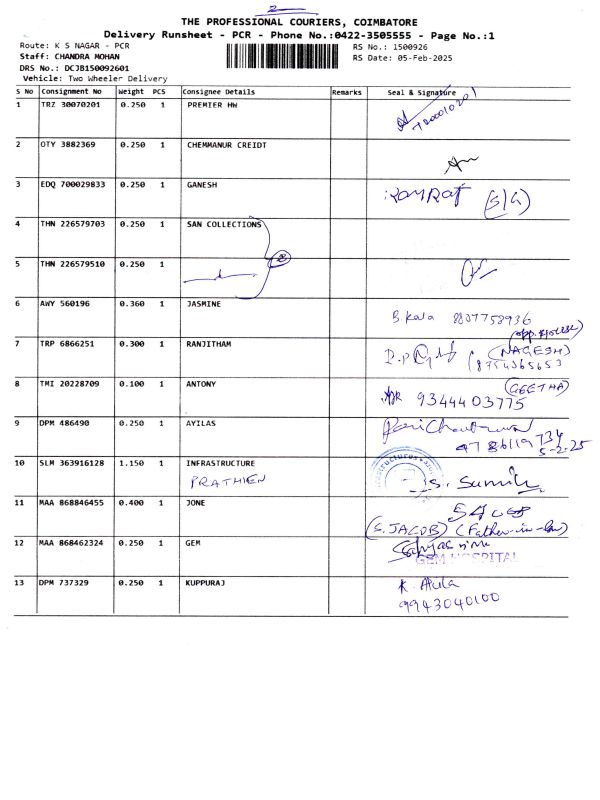 2
THE PROFESSIONAL COURIERS, COIMBATORE
Delivery Runsheet - PCR - Phone No.:0422-3505555 - Page No.:1
Route: K S NAGAR - PCR RS No.: 1500926
Staff: CHANDRA MOHAN RS Date: 05-Feb-2025
DRS No.: DCJB150092601
Vehicle: Two Wheeler Delivery
S No Consignment No Weight PCS Consignee Details Remarks Seal & Signature
1 TRZ 30070201 0.250 1 PREMIER HW
2 OTY 3882369 0.250 1 CHEMMANUR CREIDT
3 EDQ 700029833 0.250 1 GANESH
4 THN 226579703 0.250 1 SAN COLLECTIONS
5 THN 226579510 0.250 1
6 AWY 560196 0.360 1 JASMINE B. Kala 8807758936
7 TRP 6866251 0.300 1 RANJITHAM
(NAGESH)
8 TMI 20228709 0.100 1 ANTONY (GEETHA)
9344403775
9 DPM 486490 0.250 1 AYILAS
5-2-25
10 SLM 363916128 1.150 1 INFRASTRUCTURE
PRATHIEN
11 MAA 868846455 0.400 1 JONE
(S. JACOB) (Father-in-law)
12 MAA 868462324 0.250 1 GEM
GEM HOSPITAL
13 DPM 737329 0.250 1 KUPPURAJ
9943040100